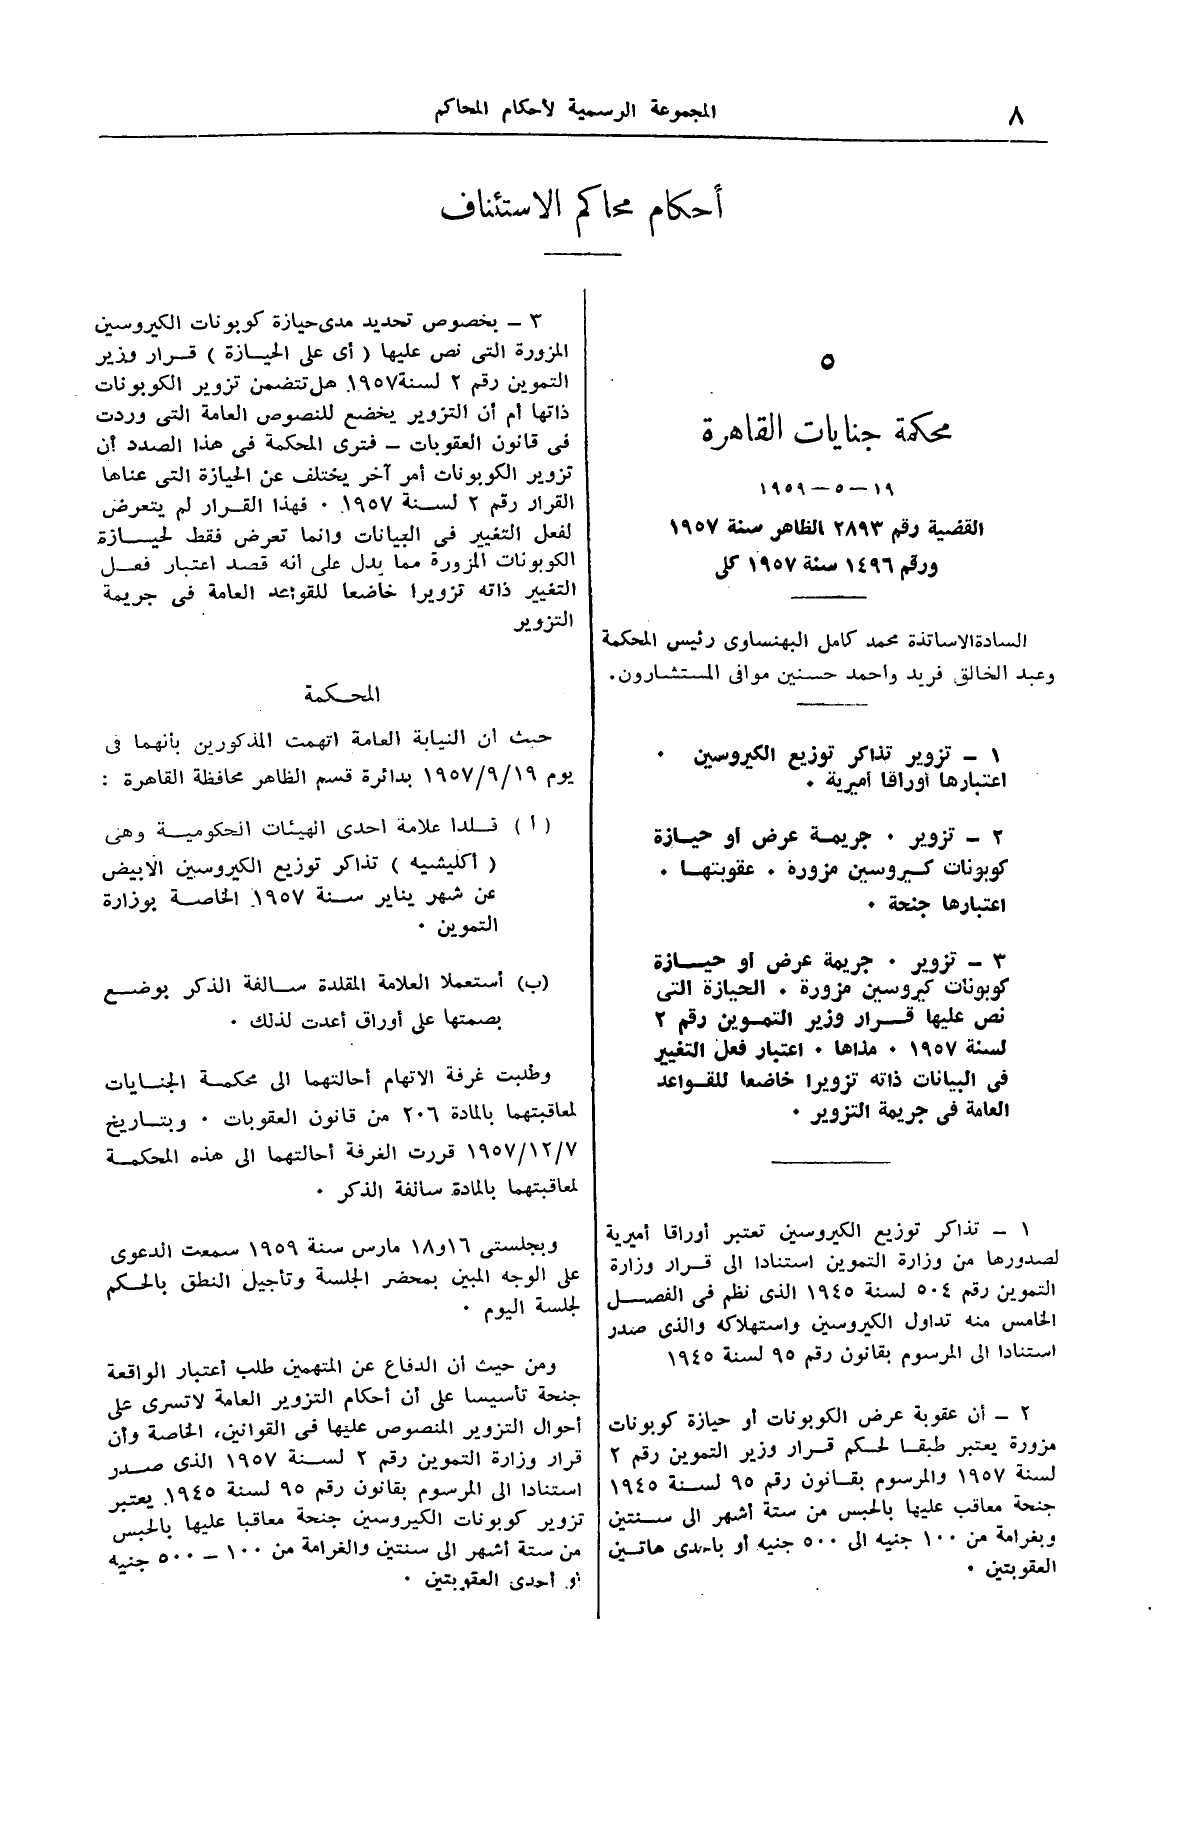 ٨
المجموعة الرسمية لأحكام المحاكم
أحكام محاكم الاستئناف
٥
محكمة جنايات القاهرة
١٩ – ٥ – ١٩٥٩
القضية رقم ٢٨٩٣ الظاهر سنة ١٩٥٧
ورقم ١٤٩٦ سنة ١٩٥٧ كلى
السادة الاساتذة محمد كامل البهنساوى رئيس المحكمة
وعبد الخالق فريد واحمد حسنين موافى المستشارون.
١ – تزوير تذاكر توزيع الكيروسين ٠
اعتبارها أوراقا أميرية ٠
٢ – تزوير ٠ جريمة عرض أو حيازة
كوبونات كيروسين مزورة ٠ عقوبتها ٠
اعتبارها جنحة ٠
٣ – تزوير ٠ جريمة عرض أو حيازة
كوبونات كيروسين مزورة ٠ الحيازة التى
نص عليها قرار وزير التموين رقم ٢
لسنة ١٩٥٧ ٠ مداها ٠ اعتبار فعل التغيير
فى البيانات ذاته تزويرا خاضعا للقواعد
العامة فى جريمة التزوير ٠
١ – تذاكر توزيع الكيروسين تعتبر أوراقا أميرية
لصدورها من وزارة التموين استنادا الى قرار وزارة
التموين رقم ٥٠٤ لسنة ١٩٤٥ الذى نظم فى الفصل
الخامس منه تداول الكيروسين واستهلاكه والذى صدر
استنادا الى المرسوم بقانون رقم ٩٥ لسنة ١٩٤٥
٢ – أن عقوبة عرض الكوبونات أو حيازة كوبونات
مزورة يعتبر طبقا لحكم قرار وزير التموين رقم ٢
لسنة ١٩٥٧ والمرسوم بقانون رقم ٩٥ لسنة ١٩٤٥
جنحة معاقب عليها بالحبس من ستة أشهر الى سنتين
وبغرامة من ١٠٠ جنيه الى ٥٠٠ جنيه أو باحدى هاتين
العقوبتين ٠
٣ – بخصوص تحديد مدى حيازة كوبونات الكيروسين
المزورة التى نص عليها ( أى على الحيازة ) قرار وزير
التموين رقم ٢ لسنة ١٩٥٧ هل تتضمن تزوير الكوبونات
ذاتها أم أن التزوير يخضع للنصوص العامة التى وردت
فى قانون العقوبات – فترى المحكمة فى هذا الصدد أن
تزوير الكوبونات أمر آخر يختلف عن الحيازة التى عناها
القرار رقم ٢ لسنة ١٩٥٧ ٠ فهذا القرار لم يتعرض
لفعل التغيير فى البيانات وانما تعرض فقط لحيازة
الكوبونات المزورة مما يدل على انه قصد اعتبار فعل
التغيير ذاته تزويرا خاضعا للقواعد العامة فى جريمة
التزوير
المحكمة
حيث أن النيابة العامة اتهمت المذكورين بأنهما فى
يوم ١٩٥٧/٩/١٩ بدائرة قسم الظاهر محافظة القاهرة :
( أ ) قلدا علامة احدى الهيئات الحكومية وهى
( أكليشيه ) تذاكر توزيع الكيروسين الابيض
عن شهر يناير سنة ١٩٥٧ الخاصة بوزارة
التموين ٠
(ب) أستعملا العلامة المقلدة سالفة الذكر بوضع
بصمتها على أوراق أعدت لذلك ٠
وطلبت غرفة الاتهام أحالتهما الى محكمة الجنايات
لمعاقبتهما بالمادة ٢٠٦ من قانون العقوبات ٠ وبتاريخ
١٩٥٧/١٢/٧ قررت الغرفة أحالتهما الى هذه المحكمة
لمعاقبتهما بالمادة سالفة الذكر ٠
وبجلستى ١٦و١٨ مارس سنة ١٩٥٩ سمعت الدعوى
على الوجه المبين بمحضر الجلسة وتأجيل النطق بالحكم
لجلسة اليوم ٠
ومن حيث أن الدفاع عن المتهمين طلب أعتبار الواقعة
جنحة تأسيسا على أن أحكام التزوير العامة لاتسرى على
أحوال التزوير المنصوص عليها فى القوانين، الخاصة وأن
قرار وزارة التموين رقم ٢ لسنة ١٩٥٧ الذى صدر
استنادا الى المرسوم بقانون رقم ٩٥ لسنة ١٩٤٥ يعتبر
تزوير كوبونات الكيروسين جنحة معاقبا عليها بالحبس
من ستة أشهر الى سنتين والغرامة من ١٠٠ – ٥٠٠ جنيه
أو أحدى العقوبتين ٠